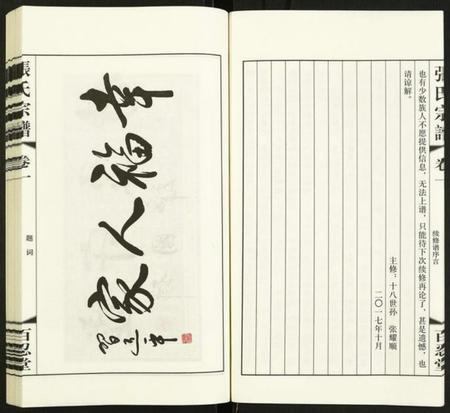 张氏宗谱
卷一
续修谱序言
百忍堂
也有少数族人不愿提供信息，无法上谱，只能待下次续修再论了，甚是遗憾，也
请谅解。
主修：十八世孙 张耀顺
二〇一七年十月
幸福人家
張氏宗譜
卷一
题词
百忍堂